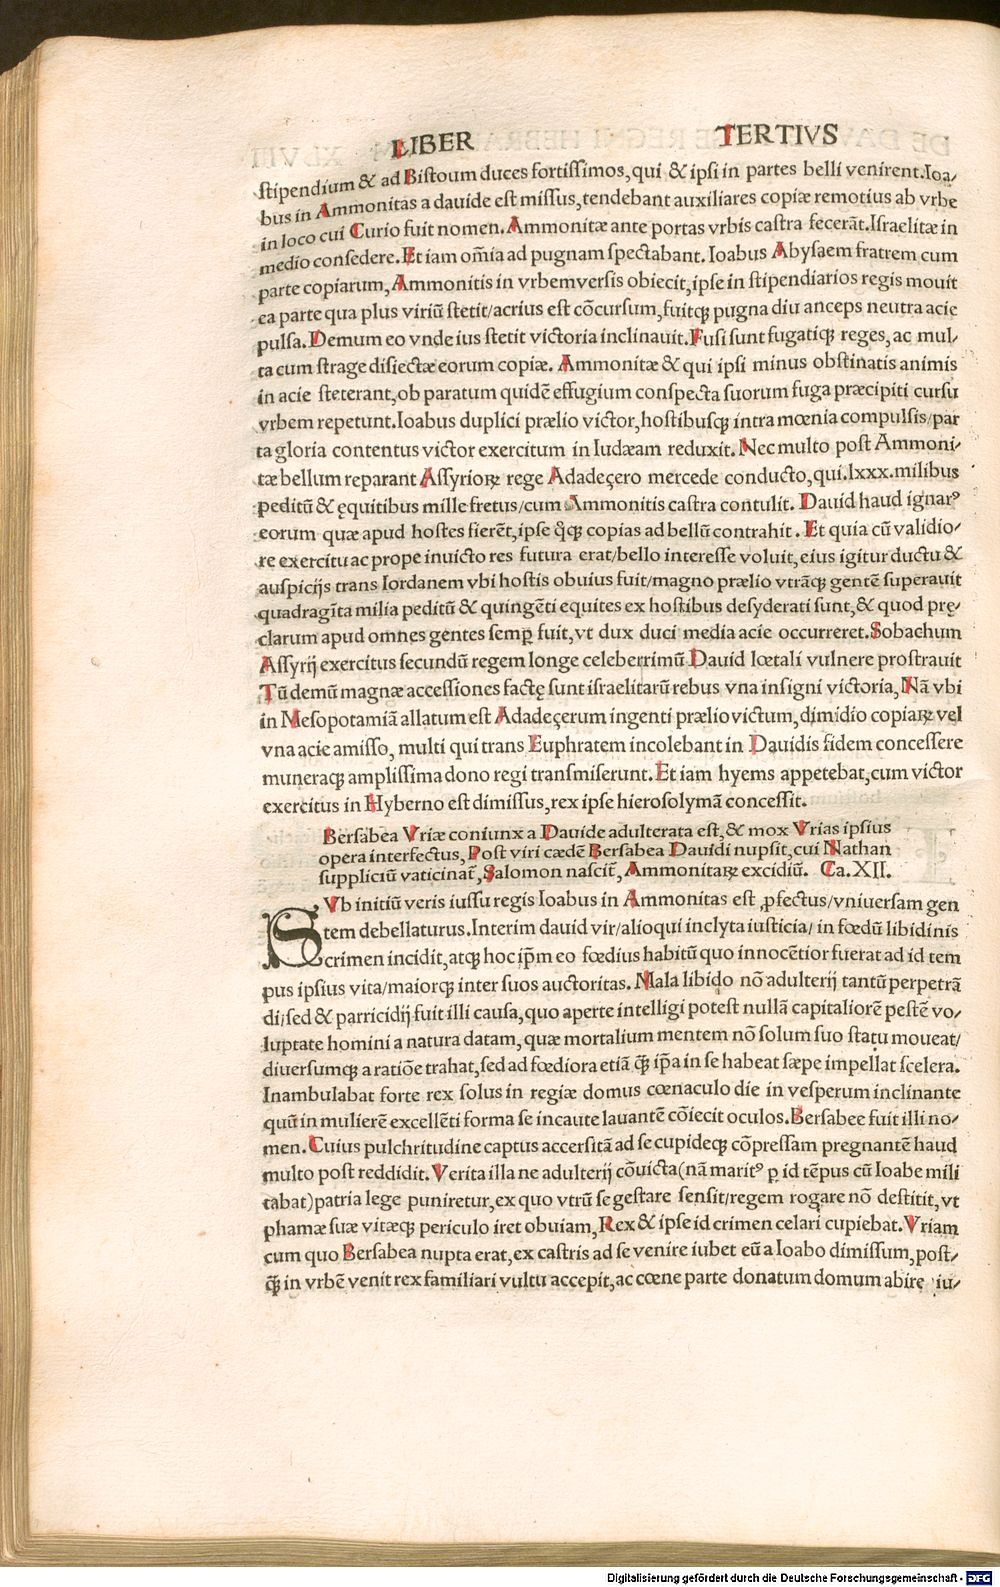 LIBER TERTIVS
stipendium & ad Bistoum duces fortissimos,qui & ipsi in partes belli venirent.Ioa/
bus in Ammonitas a dauide est missus,tendebant auxiliares copiæ remotius ab vrbe
in loco cui Curio fuit nomen.Ammonitæ ante portas vrbis castra fecerāt.Israelitæ in
medio consedere.Et iam om̄ia ad pugnam spectabant.Ioabus Abysaem fratrem cum
parte copiarum,Ammonitis in vrbemversis obiecit,ipse in stipendiarios regis mouit
ea parte qua plus viriū stetit/acrius est cōcursum,fuitqꝫ pugna diu anceps neutra acie
pulsa.Demum eo vnde ius stetit victoria inclinauit.Fusi sunt fugatiqꝫ reges,ac mul/
ta cum strage disiectæ eorum copiæ. Ammonitæ & qui ipsi minus obstinatis animis
in acie steterant,ob paratum quidē effugium conspecta suorum fuga præcipiti cursu
vrbem repetunt.Ioabus duplici prælio victor,hostibusqꝫ intra mœnia compulsis/par
ta gloria contentus victor exercitum in Iudæam reduxit.Nec multo post Ammoni/
tæ bellum reparant Assyrioꝝ rege Adadeçero mercede conducto,qui.lxxx.milibus
peditū & ęquitibus mille fretus/cum Ammonitis castra contulit. Dauid haud ignarꝰ
eorum quæ apud hostes fierēt,ipse q̄qꝫ copias ad bellū contrahit. Et quia cū validio/
re exercitu ac prope inuicto res futura erat/bello interesse voluit,eius igitur ductu &
auspicijs trans Iordanem vbi hostis obuius fuit/magno prælio vtrāqꝫ gentē superauit
quadragīta milia peditū & quingēti equites ex hostibus desyderati sunt,& quod prę/
clarum apud omnes gentes semꝑ fuit,vt dux duci media acie occurreret.Sobachum
Assyrij exercitus secundū regem longe celeberrimū Dauid lœtali vulnere prostrauit
Tū demū magnæ accessiones factę sunt israelitarū rebus vna insigni victoria,Nā vbi
in Mesopotamiā allatum est Adadeçerum ingenti prælio victum,dimidio copiaꝝ vel
vna acie amisso, multi qui trans Euphratem incolebant in Dauidis fidem concessere
muneraqꝫ amplissima dono regi transmiserunt.Et iam hyems appetebat,cum victor
exercitus in Hyberno est dimissus,rex ipse hierosolymā concessit.
Bersabea Vriæ coniunx a Dauide adulterata est,& mox Vrias ipsius
opera interfectus,Post viri cædē Bersabea Dauidi nupsit,cui Nathan
suppliciū vaticinat̄,Salomon nascit̄,Ammonitaꝝ excidiū. Ca.XII.
SVb initiū veris iussu regis Ioabus in Ammonitas est ꝓfectus/vniuersam gen
tem debellaturus.Interim dauid vir/alioqui inclyta iusticia/ in fœdū libidinis
crimen incidit,atqꝫ hoc ip̄m eo fœdius habitū quo innocētior fuerat ad id tem
pus ipsius vita/maiorqꝫ inter suos auctoritas. Mala libido nō adulterij tantū perpetrā
di/sed & parricidij fuit illi causa,quo aperte intelligi potest nullā capitaliorē pestē vo/
luptate homini a natura datam, quæ mortalium mentem nō solum suo statu moueat/
diuersumqꝫ a ratiōe trahat,sed ad fœdiora etiā q̄ꝫ ip̄a in se habeat sæpe impellat scelera.
Inambulabat forte rex solus in regiæ domus cœnaculo die in vesperum inclinante
quū in mulierē excellēti forma se incaute lauantē cōiecit oculos.Bersabee fuit illi no/
men.Cuius pulchritudine captus accersitā ad se cupideqꝫ cōpressam pregnantē haud
multo post reddidit.Verita illa ne adulterij cōuicta(nā maritꝰ ꝑ id tēpus cū Ioabe mili
tabat)patria lege puniretur,ex quo vtrū se gestare sensit/regem rogare nō destitit,vt
phamæ suæ vitæqꝫ periculo iret obuiam,Rex & ipse id crimen celari cupiebat.Vriam
cum quo Bersabea nupta erat,ex castris ad se venire iubet eū a Ioabo dimissum,post/
q̄ꝫ in vrbē venit rex familiari vultu accepit,ac cœne parte donatum domum abire iu/
Digitalisierung gefördert durch die Deutsche Forschungsgemeinschaft - DFG